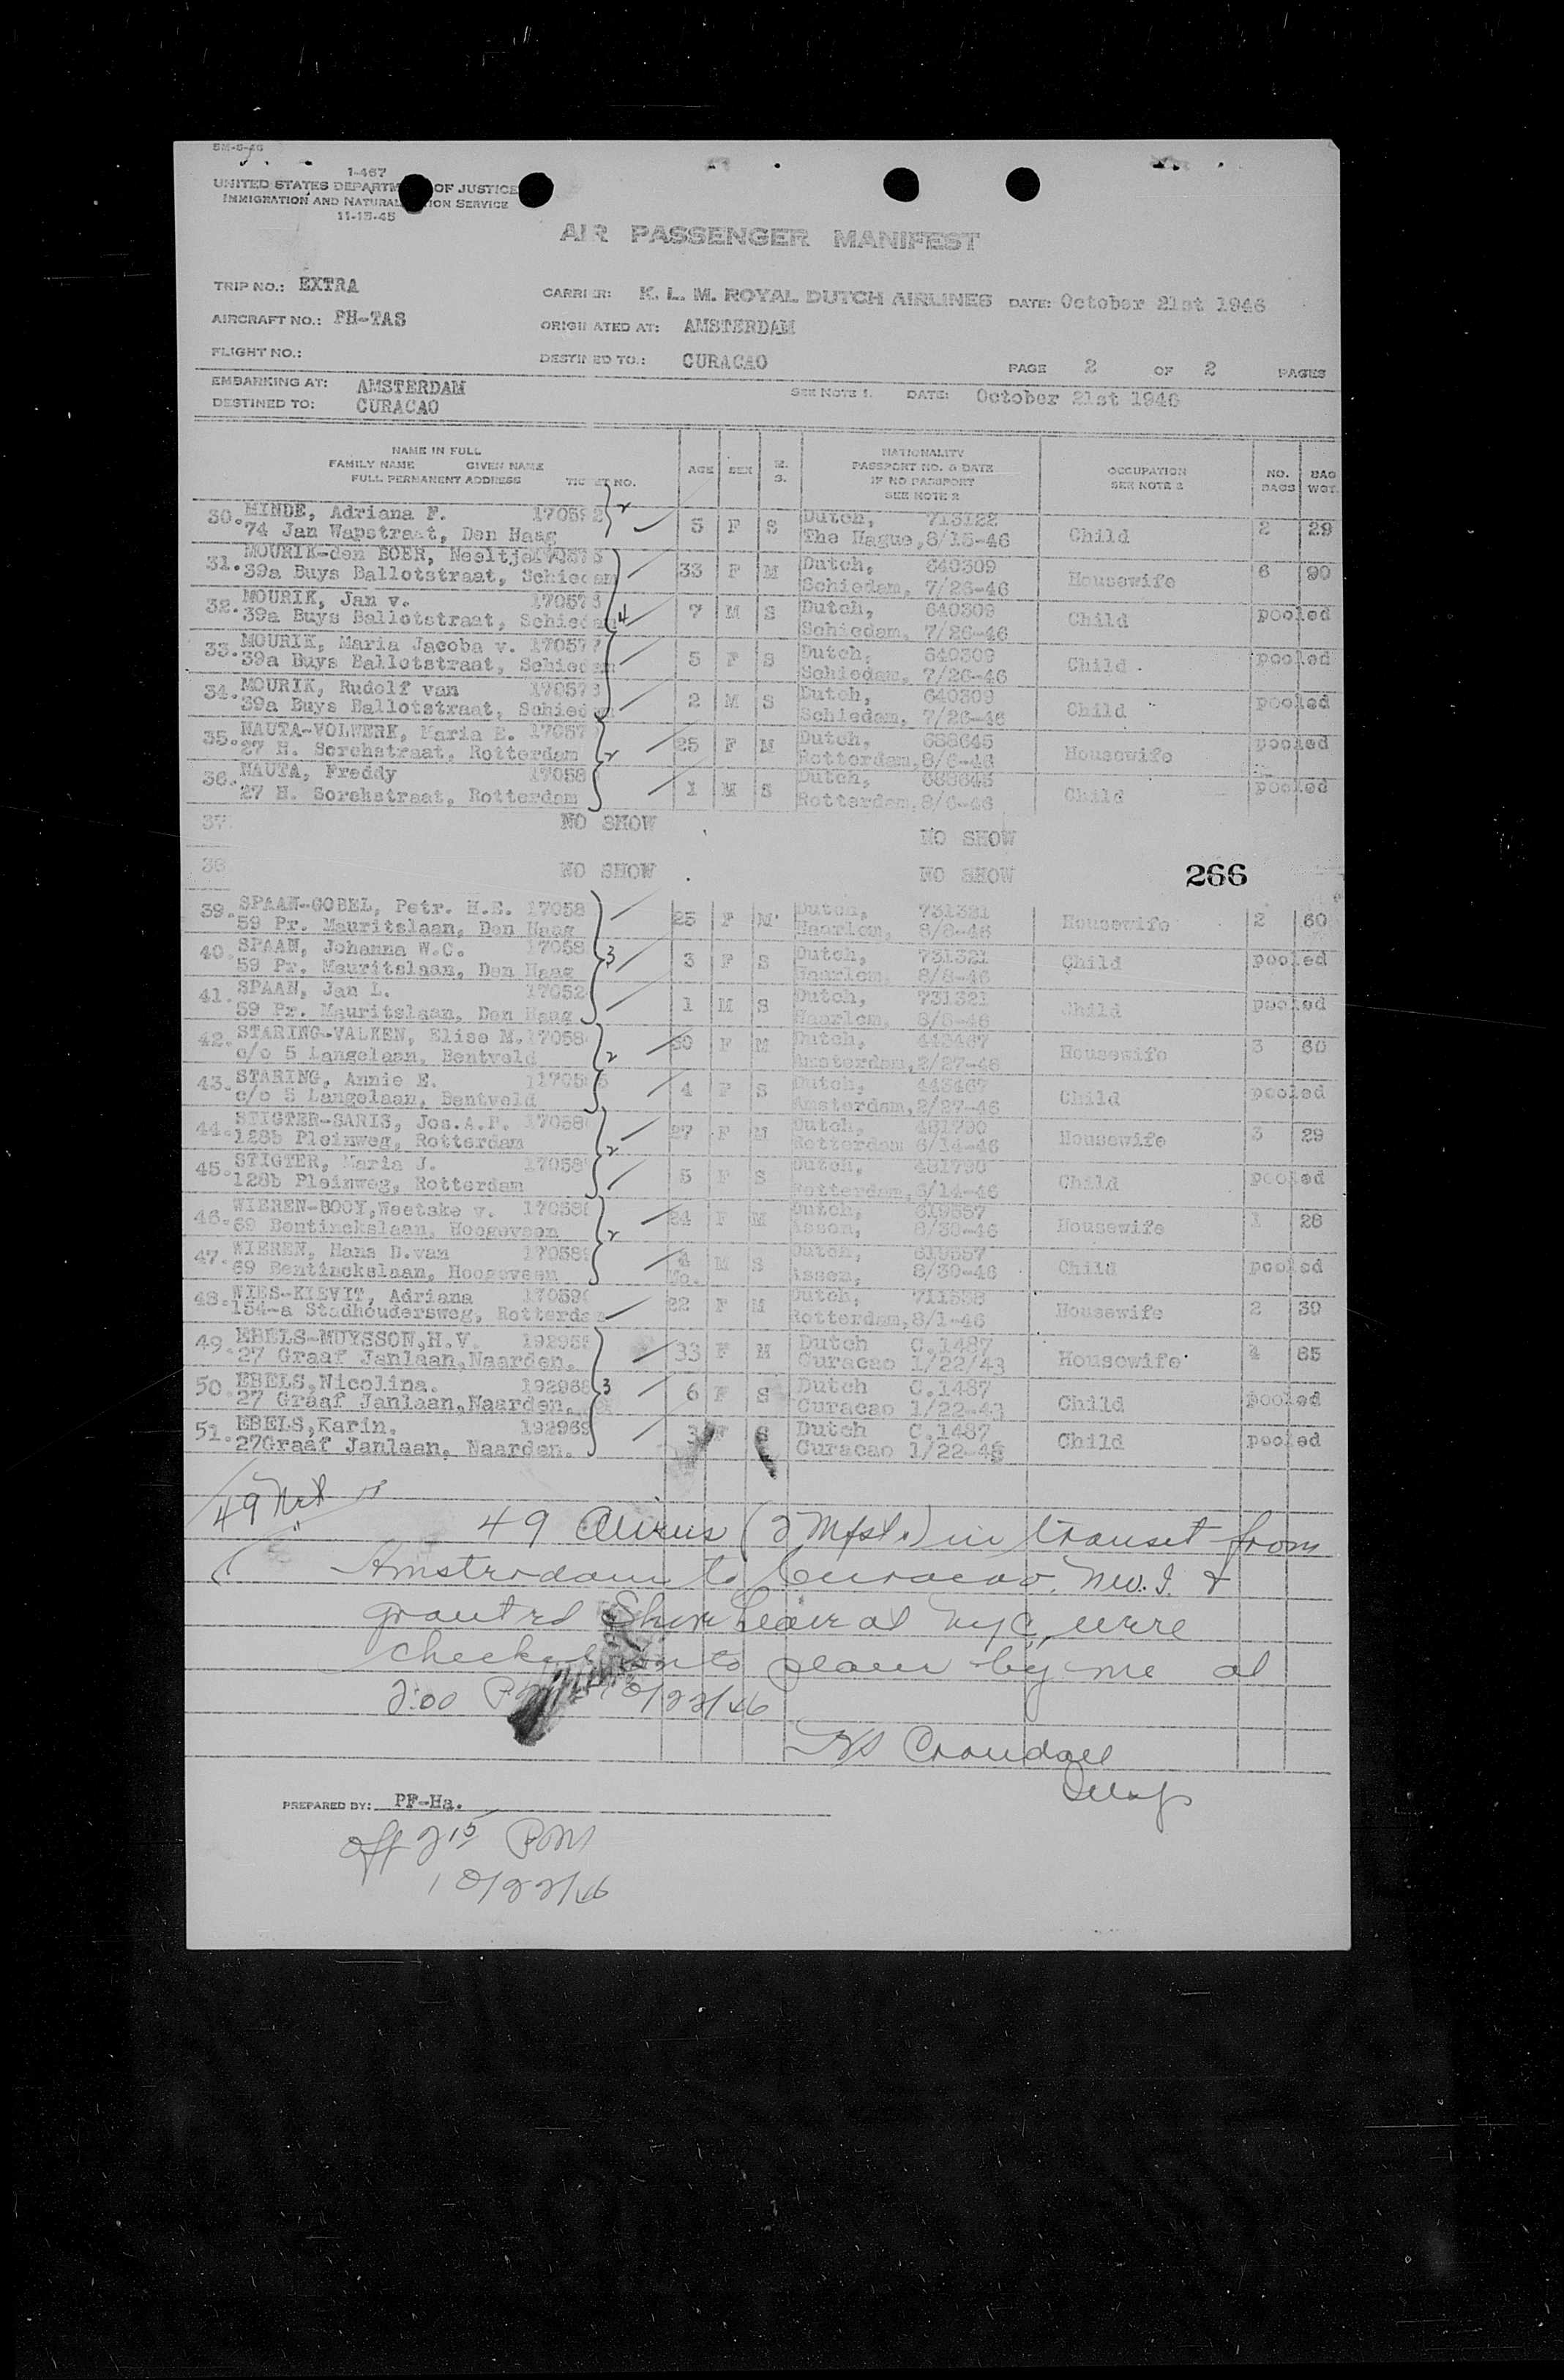 SM-8-46
1-467
UNITED STATES DEPARTM OF JUSTICE
IMMIGRATION AND NATURAL TION SERVICE
11-15-45
AIR PASSENGER MANIFEST
TRIP NO.: EXTRA CARRIER: K. L. M. ROYAL DUTCH AIRLINES DATE: October 21st 1946
AIRCRAFT NO.: PH-TAS ORIGINATED AT: AMSTERDAM
FLIGHT NO.: DESTINED TO.: CURACAO PAGE 2 OF 2 PAGES
EMBARKING AT: AMSTERDAM SEE NOTE 1. DATE: October 21st 1946
DESTINED TO: CURACAO
NAME IN FULL
FAMILY NAME GIVEN NAME
FULL PERMANENT ADDRESS TICKET NO. AGE SEX M. S.
NATIONALITY
PASSPORT NO. & DATE
IF NO PASSPORT
SEE NOTE 2
OCCUPATION
SEE NOTE 2
NO. BAGS BAG WGT.
30. MINDE, Adriana F. 170592 5 F S Dutch, 713122 Child 2 29
74 Jan Wapstraat, Den Haag The Hague, 8/15-46
31. MOURIK-den BOER, Neeltje 33 F M Dutch, 640309 Housewife 6 90
39a Buys Ballotstraat, Schiedam Schiedam, 7/26-46
32. MOURIK, Jan v. 170576 4 7 M S Dutch, 640309 Child pooled
39a Buys Ballotstraat, Schiedam Schiedam, 7/26-46
33. MOURIK, Maria Jacoba v. 170577 5 F S Dutch, 640309 Child pooled
39a Buys Ballotstraat, Schiedam Schiedam, 7/26-46
34. MOURIK, Rudolf van 170578 2 M S Dutch, 640309 Child pooled
39a Buys Ballotstraat, Schiedam Schiedam, 7/26-46
35. NAUTA-VOLWERK, Maria E. 17057 25 F M Dutch, 688645 Housewife pooled
27 H. Sorchstraat, Rotterdam 2 Rotterdam, 8/6-46
36. NAUTA, Freddy 17058 1 M S Dutch, 688645 Child pooled
27 H. Sorchstraat, Rotterdam Rotterdam, 8/6-46
37. NO SHOW NO SHOW
38 NO SHOW NO SHOW 266
39. SPAAN-GOBEL, Petr. H.E. 17058 25 F M Dutch, 731321 Housewife 2 60
59 Pr. Mauritslaan, Den Haag Haarlem, 8/8-46
40. SPAAN, Johanna W.C. 17058 3 3 F S Dutch, 731321 Child pooled
59 Pr. Mauritslaan, Den Haag Haarlem, 8/8-46
41. SPAAN, Jan L. 17052 1 M S Dutch, 731321 Child pooled
59 Pr. Mauritslaan, Den Haag Haarlem, 8/8-46
42. STARING-VALKEN, Elise M. 17058 F M Dutch, 443467 Housewife 3 60
c/o 5 Langelaan, Bentveld 2 Amsterdam, 2/27-46
43. STARING, Annie E. 4 F S Dutch, 443467 Child pooled
c/o 5 Langelaan, Bentveld Amsterdam, 2/27-46
44. STIGTER-SARIS, Jos.A.P. 17058 27 F M Dutch, 481790 Housewife 3 29
128b Pleinweg, Rotterdam 2 Rotterdam 6/14-46
45. STIGTER, Maria J. 17058 5 F S Dutch, 481790 Child pooled
128b Pleinweg, Rotterdam Rotterdam, 6/14-46
46. WIEREN-BOOY, Weetske v. 17058 24 F M Dutch, 619557 Housewife 1 26
69 Bentinckslaan, Hoogeveen 2 Assen, 8/30-46
47. WIEREN, Hans D.van 17058 4 Mo. M S Dutch, 619557 Child pooled
69 Bentinckslaan, Hoogeveen Assen, 8/30-46
48. WIES-KIEVIT, Adriana 17059 22 F M Dutch, 711538 Housewife 2 39
154-a Stadhoudersweg, Rotterdam Rotterdam, 8/1-46
49. EBELS-MUYSSON, H.V. 19296 33 F M Dutch C.1487 Housewife 4 65
27 Graaf Janlaan, Naarden. Curacao 1/22/43
50. EBELS, Nicolina. 192968 3 6 F S Dutch C.1487 Child pooled
27 Graaf Janlaan, Naarden. Curacao 1/22-43
51. EBELS, Karin. 192969 3 F S Dutch C.1487 Child pooled
27Graaf Janlaan, Naarden. Curacao 1/22-43
49
49 Aliens (2 Mfsts) in transit from
Amsterdam to Curacao, N.W.I. &
granted Shore Leave at NYC were
checked onto plane by me at
2:00 PM 10/22/46
Crandall
Insp
PREPARED BY: PF-Ha.
Off 2 15 PM
10/22/46